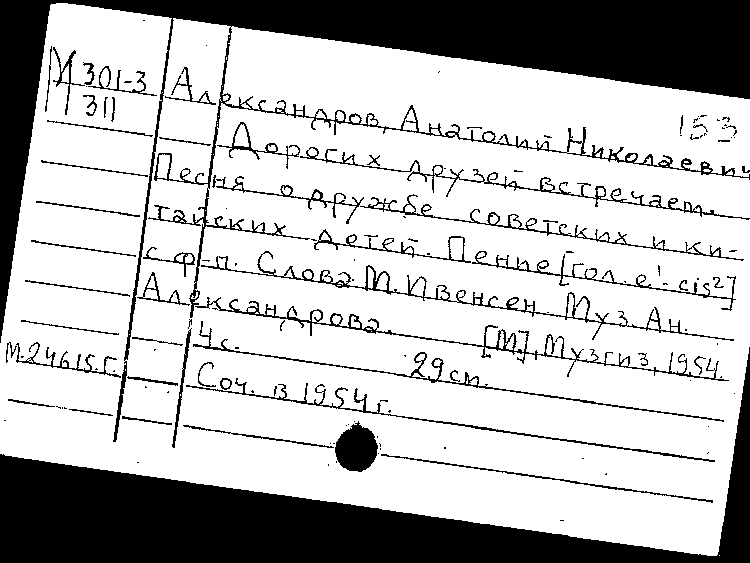 М 301-3
311
153
Александров, Анатолий Николаевич
Дорогих друзей встречает.
Песня о дружбе советских и ки-
тайских детей. Пение [гол. e¹-cis²]
с ф-п. Слова М. Ивенсен Муз. Ан.
Александрова. [М], Музгиз, 1954.
4 с. 29 см.
М.24615.г.
Соч. в 1954 г.